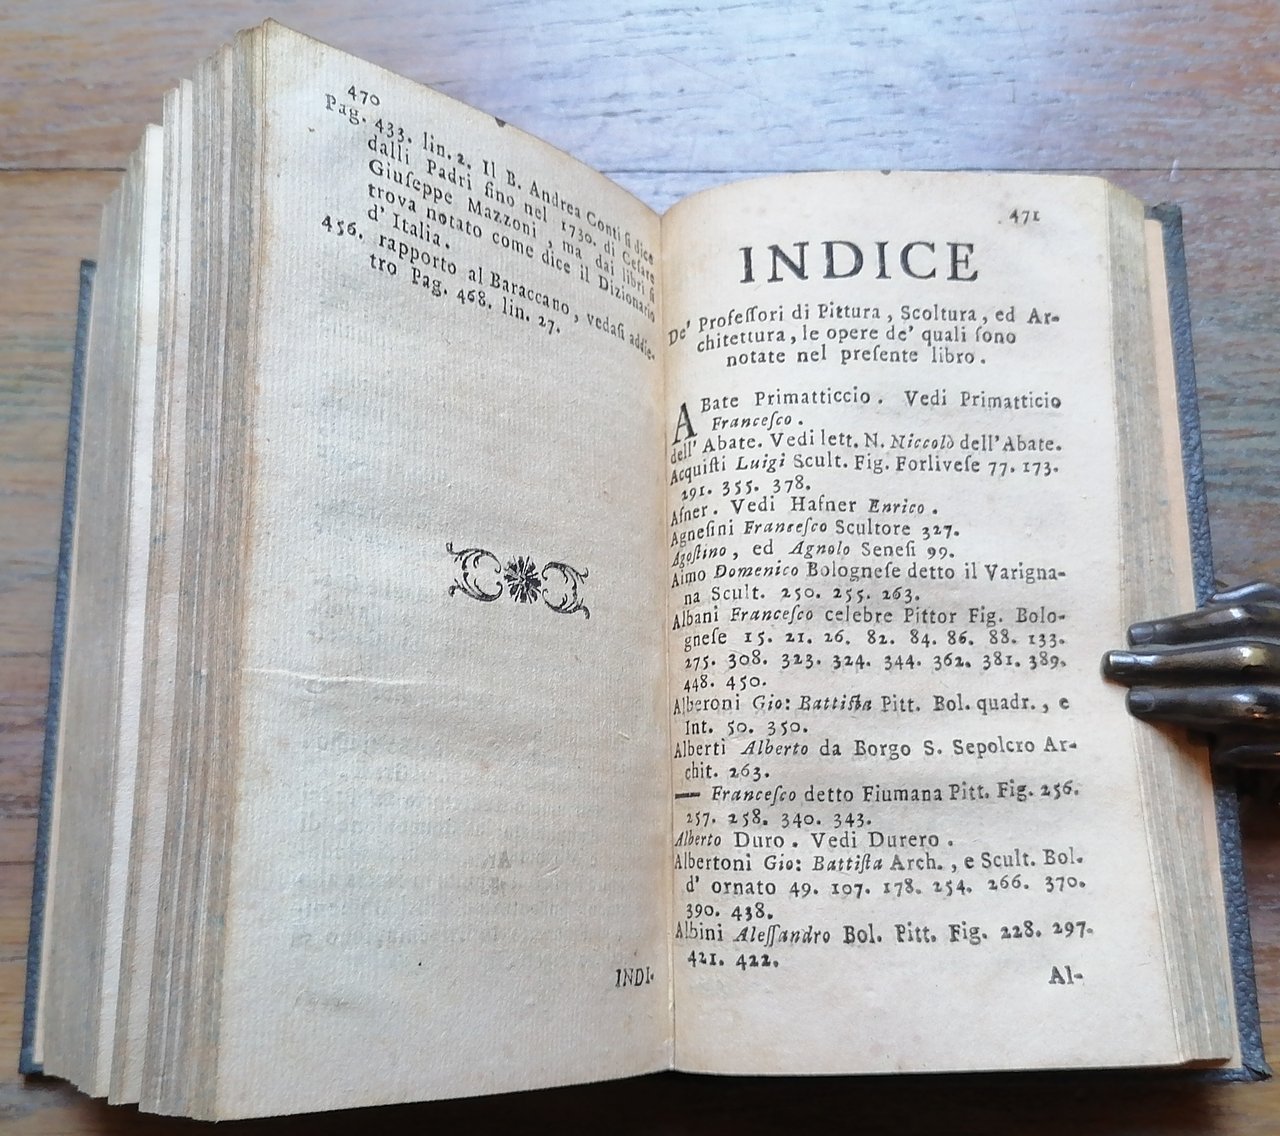 470
Pag. 433. lin. 2. Il B. Andrea Conti ſi dice
dalli Padri fino nel 1730. di Ceſare
Giuſeppe Mazzoni, ma dai libri ſi
trova notato come dice il Dizionario
d' Italia.
456. rapporto al Baraccano, vedaſi addie-
tro Pag. 468. lin. 27.
INDI-
471
INDICE
De' Profeſſori di Pittura, Scoltura, ed Ar-
chitettura, le opere de' quali ſono
notate nel preſente libro.
ABate Primatticcio. Vedi Primatticio
Franceſco.
dell' Abate. Vedi lett. N. Niccolò dell' Abate.
Acquiſti Luigi Scult. Fig. Forliveſe 77. 173.
291. 355. 378.
Afner. Vedi Hafner Enrico.
Agneſini Franceſco Scultore 327.
Agoſtino, ed Agnolo Seneſi 99.
Aimo Domenico Bologneſe detto il Varigna-
na Scult. 250. 255. 263.
Albani Franceſco celebre Pittor Fig. Bolo-
gneſe 15. 21. 26. 82. 84. 86. 88. 133.
275. 308. 323. 324. 344. 362. 381. 389.
448. 450.
Alberoni Gio: Battiſta Pitt. Bol. quadr., e
Int. 50. 350.
Alberti Alberto da Borgo S. Sepolcro Ar-
chit. 263.
— Franceſco detto Fiumana Pitt. Fig. 256.
257. 258. 340. 343.
Alberto Duro. Vedi Durero.
Albertoni Gio: Battiſta Arch., e Scult. Bol.
d' ornato 49. 107. 178. 254. 266. 370.
390. 438.
Albini Aleſſandro Bol. Pitt. Fig. 228. 297.
421. 422.
Al-